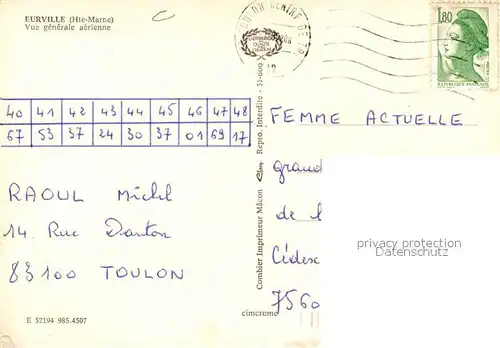 EURVILLE (Hte-Marne)
Vue générale aérienne
1,80
40 41 42 43 44 45 46 47 48
67 53 37 24 30 37 01 69 17
RAOUL Michel
14. Rue Danton
83100 TOULON
E 52194 985.4507
Combier Imprimeur Mâcon Repro. Interdite - 31-000
cimcrome
FEMME ACTUELLE
grand
de l
Cédex
7560
privacy protection
Datenschutz